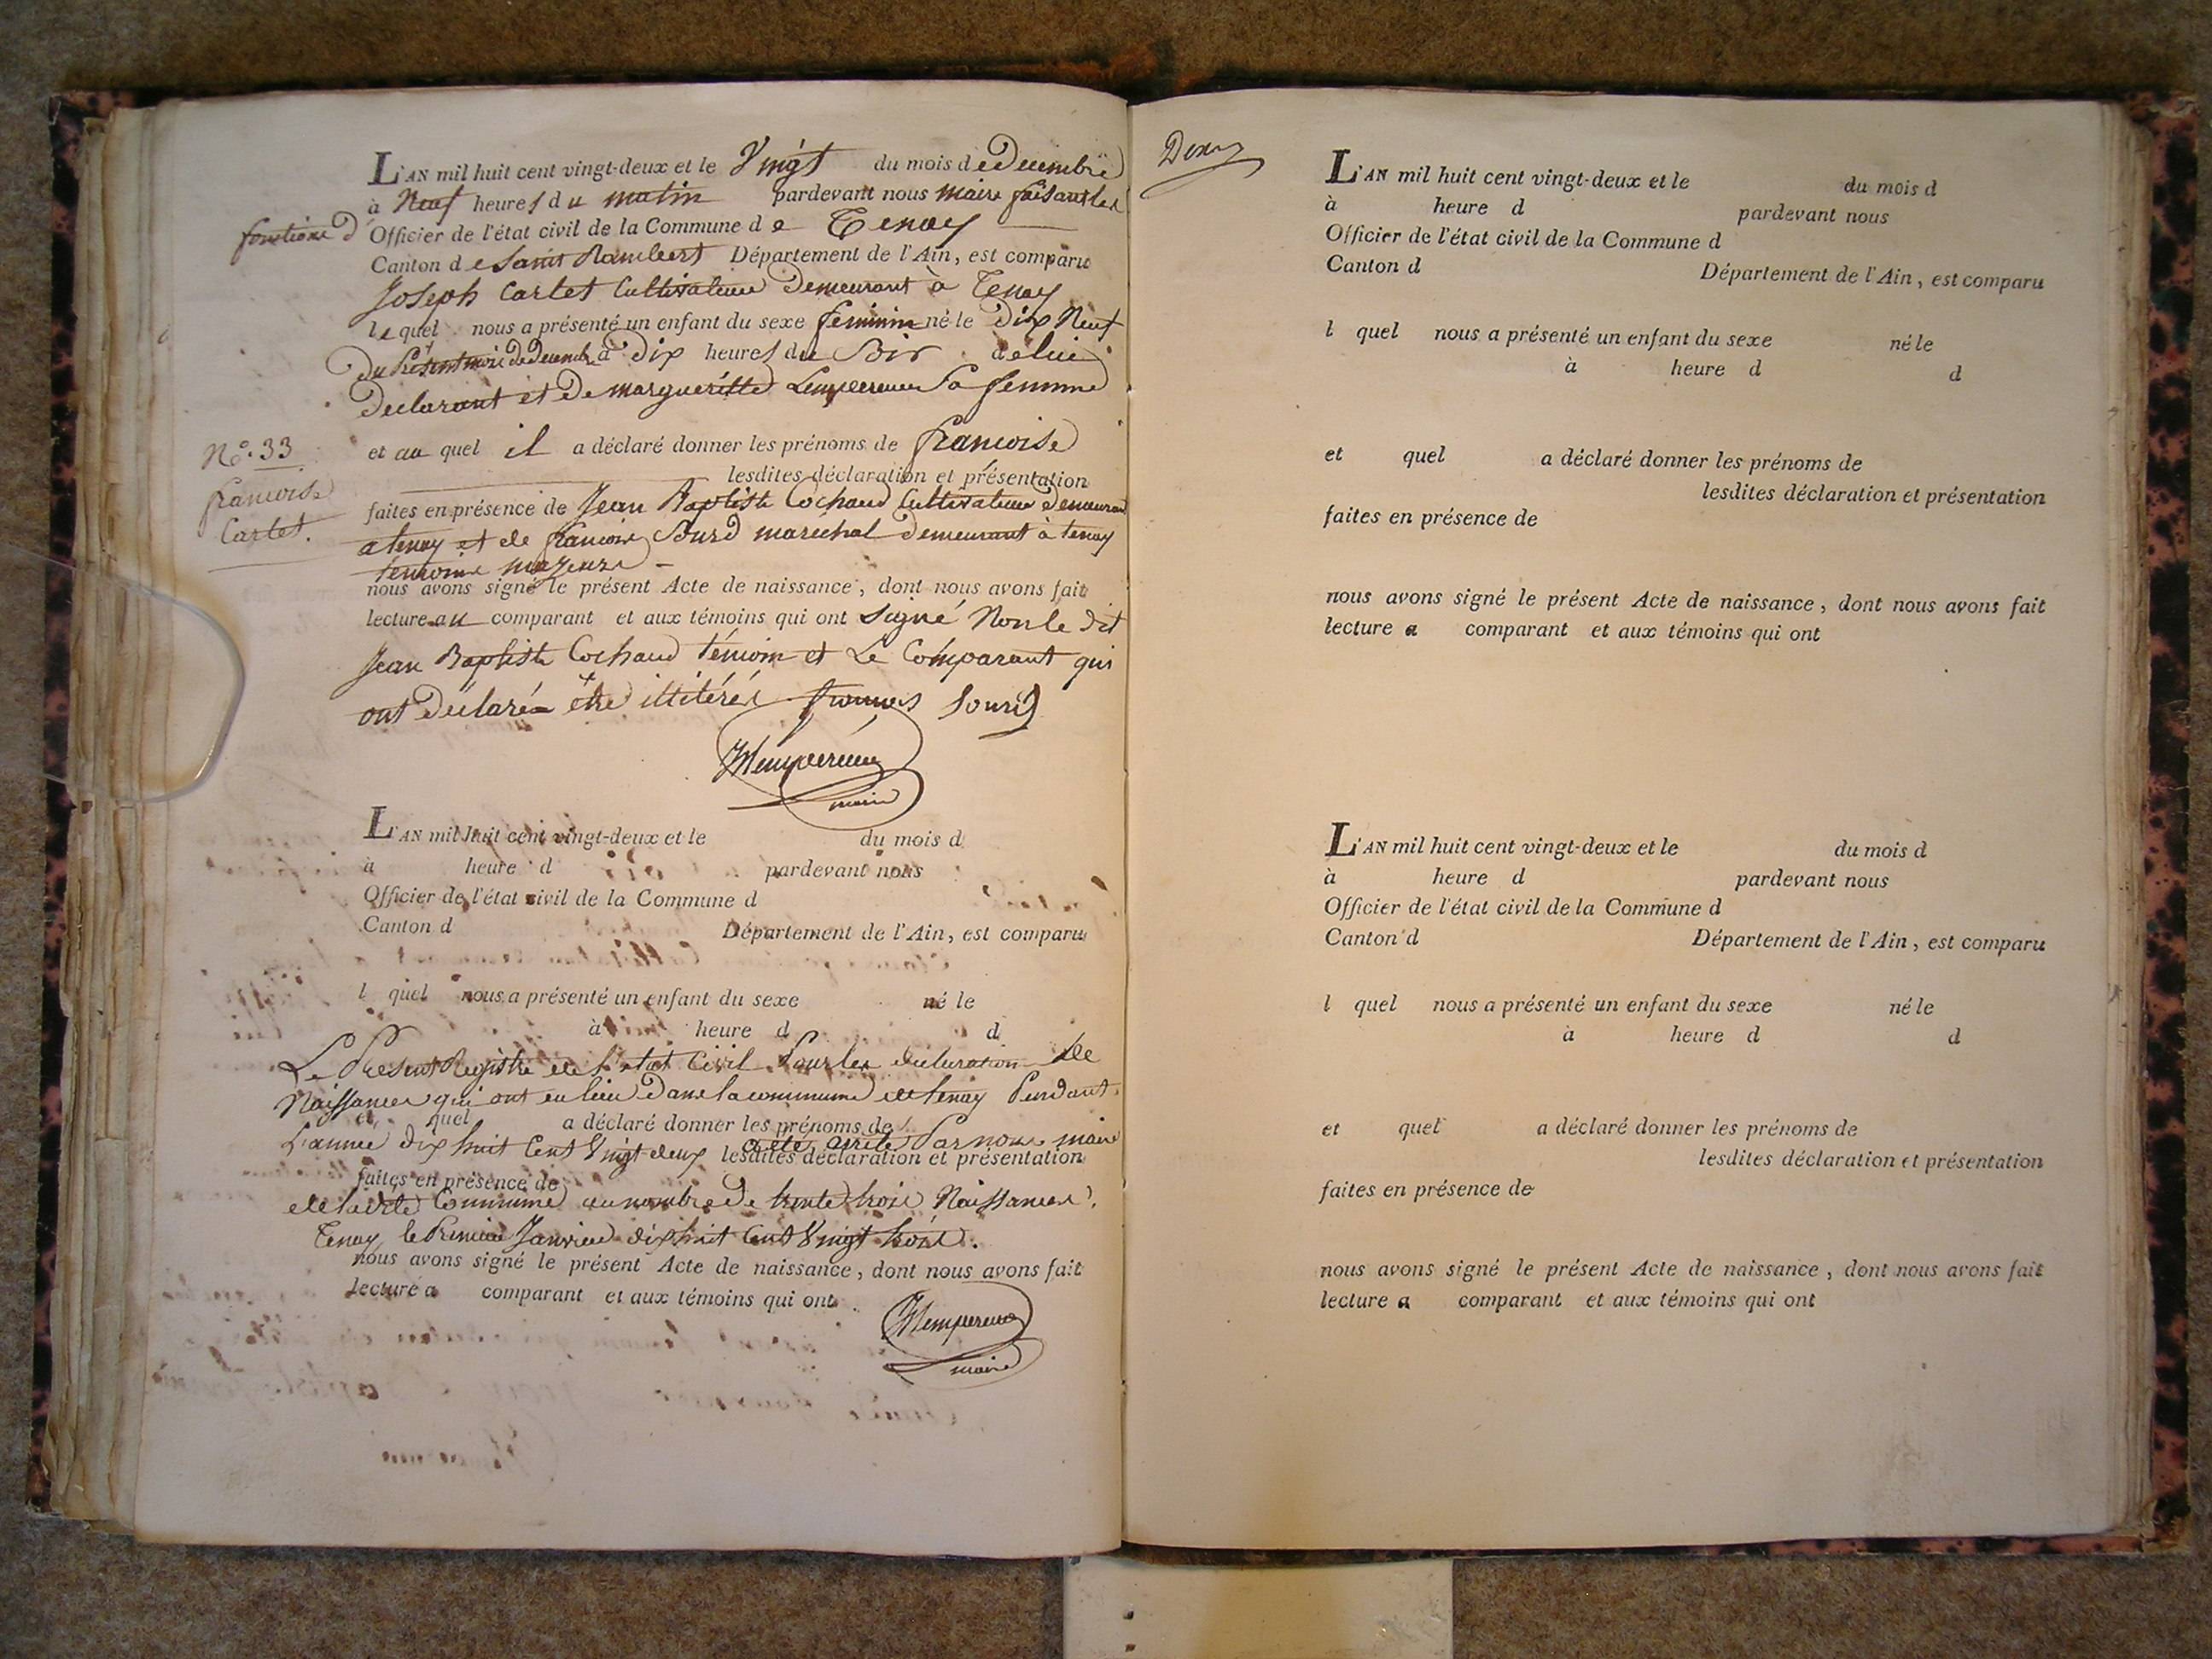 L'AN mil huit cent vingt-deux et le Vingt du mois de Decembre
à Neuf heures du matin pardevant nous maire faisant les
fonctions d' Officier de l'état civil de la Commune de Tenay
Canton de Saint Rambert Département de l'Ain, est comparu
Joseph Cartet Cultivateur Demeurant à Tenay
lequel nous a présenté un enfant du sexe feminin né le Dix Neuf
Du présent mois de decembre à Dix heures du Soir de lui
Declarant et De margueritte Lempereur Sa femme
N.º 33
francoise
Cartet.
et au quel il a déclaré donner les prénoms de francoise
lesdites déclaration et présentation
faites en présence de Jean Baptiste Cochaud Cultivateur demeurant
a tenay et de francois Sourd marechal Demeurant à tenay
temoins majeurs
nous avons signé le présent Acte de naissance, dont nous avons fait
lecture au comparant et aux témoins qui ont signé Non le dit
Jean Baptiste Cochaud témoin et Le Comparant qui
ont Déclaré être illitérés francois Sourd
Lempereur
maire
L'AN mil huit cent vingt-deux et le du mois d
à heure d pardevant nous
Officier de l'état civil de la Commune d
Canton d Département de l'Ain, est comparu
l quel nous a présenté un enfant du sexe né le
à heure d d
Le Present Registre de l'etat Civil Pour les declaration de
Naissances qui ont eu lieu Dans la commune de tenay Pendant
et quel a déclaré donner les prénoms de
L'annee dix huit Cent Vingt deux a été arrêté Par nous maire
lesdites déclaration et présentation
faites en présence de
de la dite Commune au nombre De trente trois Naissances.
Tenay le Premier Janvier dix huit Cent Vingt trois.
nous avons signé le présent Acte de naissance, dont nous avons fait
lecture a comparant et aux témoins qui ont
Lempereur
maire
L'AN mil huit cent vingt-deux et le du mois d
à heure d pardevant nous
Officier de l'état civil de la Commune d
Canton d Département de l'Ain, est comparu
l quel nous a présenté un enfant du sexe né le
à heure d d
et quel a déclaré donner les prénoms de
lesdites déclaration et présentation
faites en présence de
nous avons signé le présent Acte de naissance, dont nous avons fait
lecture a comparant et aux témoins qui ont
L'AN mil huit cent vingt-deux et le du mois d
à heure d pardevant nous
Officier de l'état civil de la Commune d
Canton d Département de l'Ain, est comparu
l quel nous a présenté un enfant du sexe né le
à heure d d
et quel a déclaré donner les prénoms de
lesdites déclaration et présentation
faites en présence de
nous avons signé le présent Acte de naissance, dont nous avons fait
lecture a comparant et aux témoins qui ont